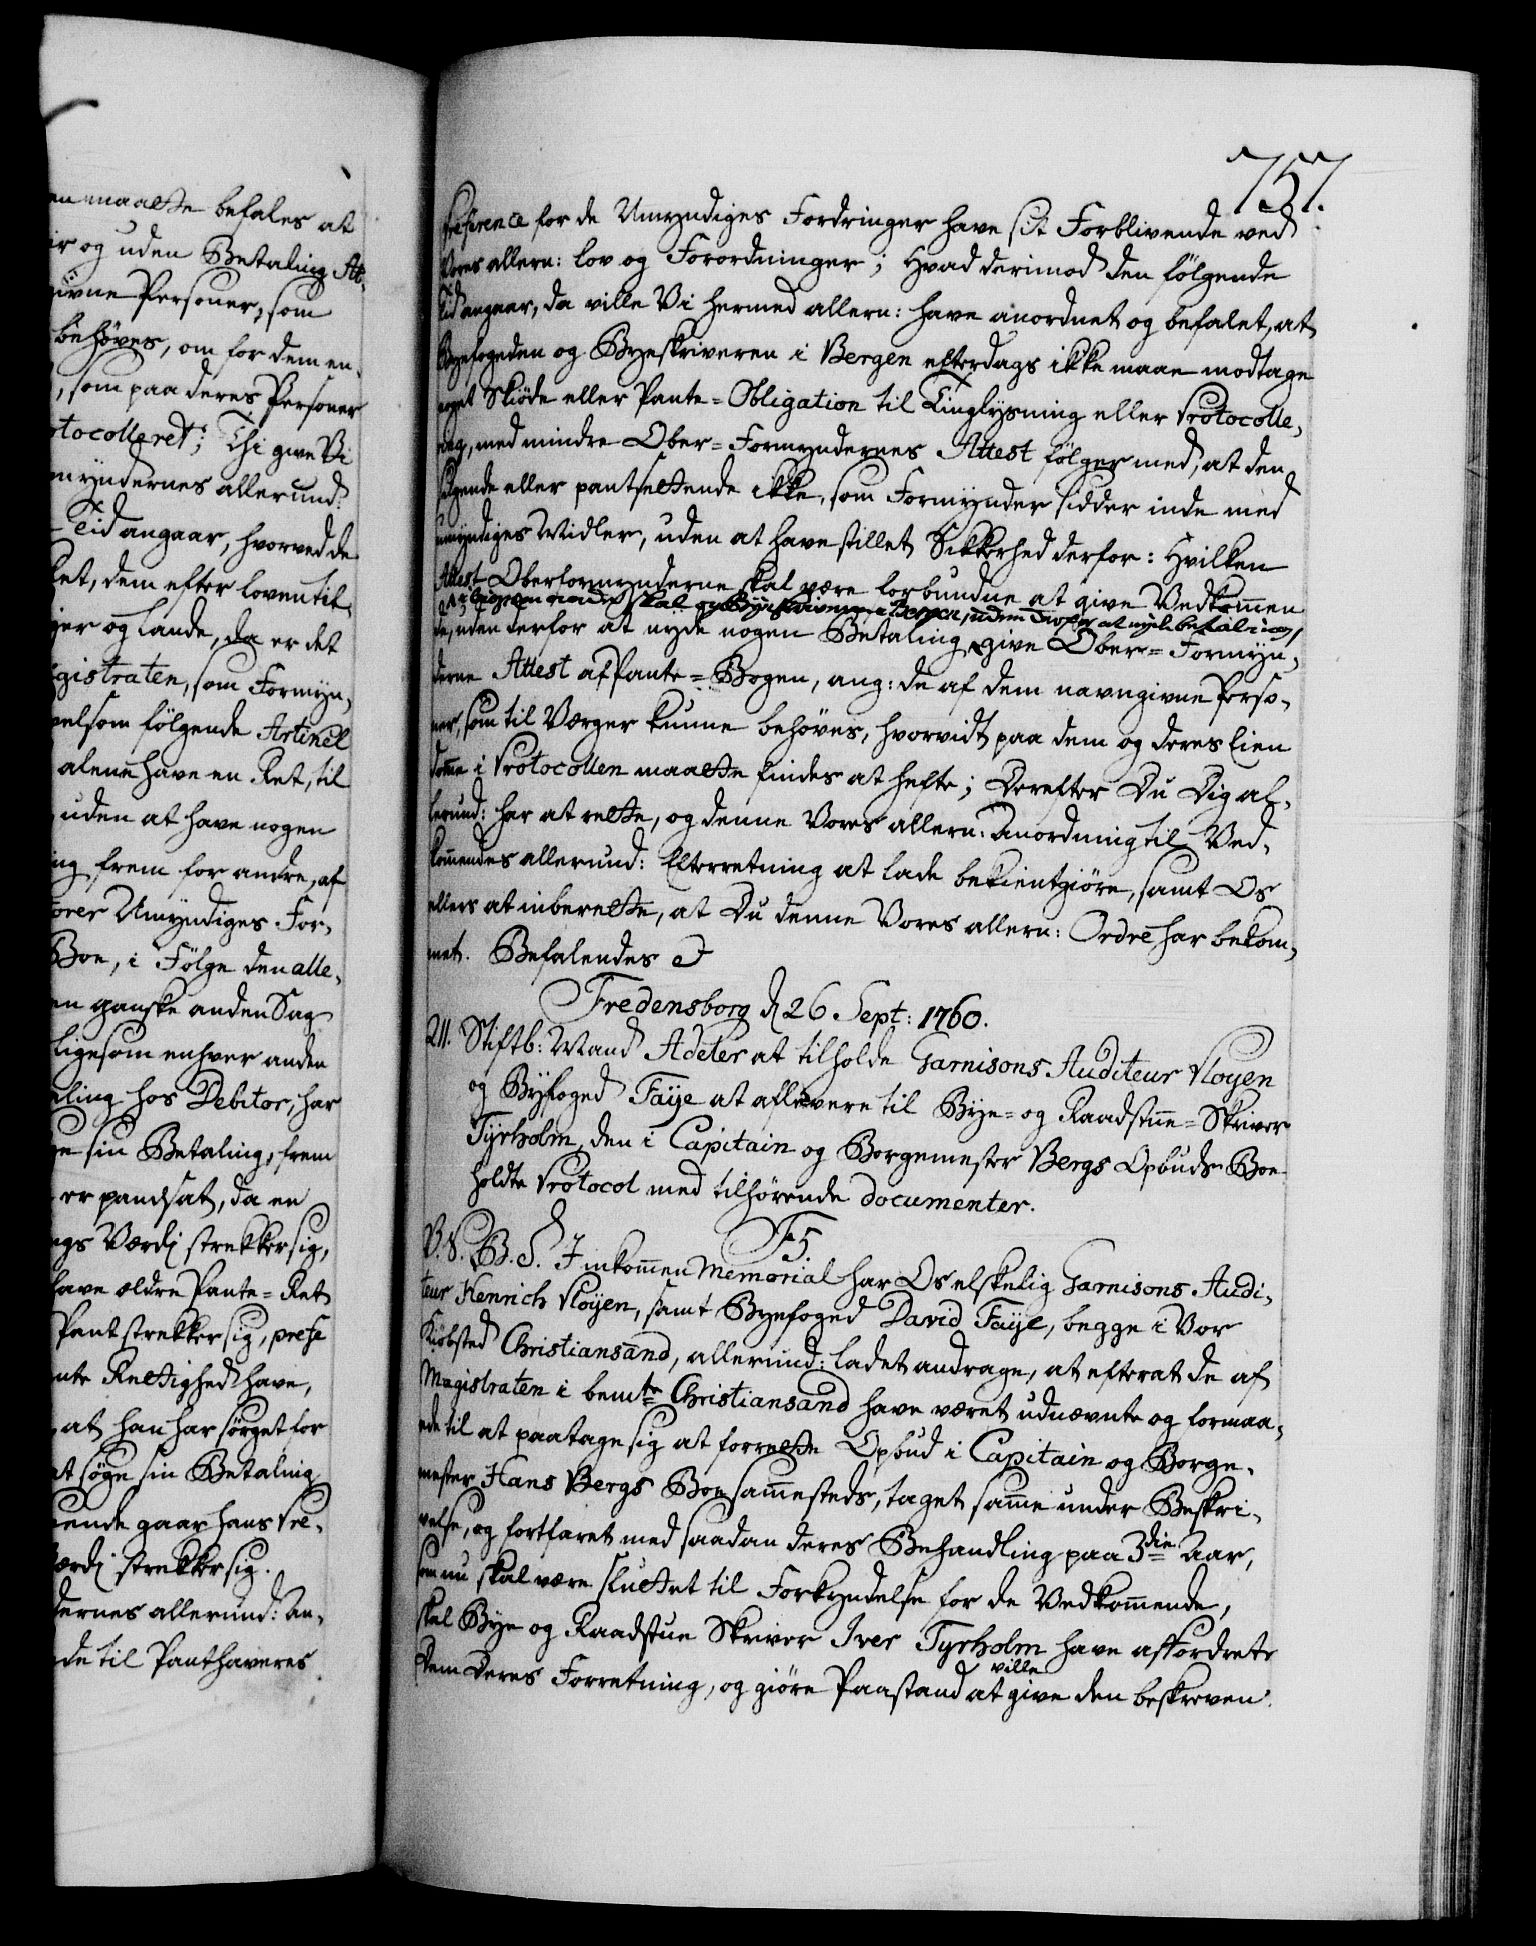 en maatte befales at
ir og uden Betaling At-
givne Personer, som
behøves, om for dem en-
, som paa deres Personer
otocolleret; Thi give Vi
myndernes allerund:
Tid angaar, hvorved de
et, dem efter loven til-
yer og Lande, da er det
gistraten, som Formyn-
velsom følgende Articel
alene have en Ret, til
uden at have nogen
ing frem for andre, af
orer Umyndiges For-
Boe, i Følge den alle-
en ganske anden Sag
ligesom enhver anden
ling hos Debitor, har
ge sin Betaling, frem
er pandsat, da en
ngs Værdj strekker sig,
have ældre Pante=Ret
Pant strekker sig, prefe
nte Rettighed have,
, at han har sørget for
at søge sin Betaling
ende gaar hans Pre-
Værdj strekker sig.
dernes allerund: An-
de til Panthaveres
757.
præference for de Umyndiges Fordringer have sit Forblivende ved
Vores allern: lov og Forordninger; Hvad derimod den følgende
Tid angaar, da ville Vi hermed allern: have anordnet og befalet, at
Byefogeden og Byeskriveren i Bergen efterdags ikke maae modtage
noget Skiøde eller Pante=Obligation til Tinglysning eller Protocolle-
ring, med mindre Ober=Formyndernes Attest følger med, at den
sælgende eller pantsettende ikke, som Formynder sidder inde med
umyndiges Midler, uden at have stillet Sikkerhed derfor: Hvilken
Attest Oberformynderne skal være forbundne at give Vedkommen
skal og Byeskriveren i Bergen, uden derfor at nyde betaling,
de, uden derfor at nyde nogen Betaling give Ober=Formyn-
derne Attest af Pante=Bogen, ang: de af dem navngivne Perso-
ner, som til Værger kunne behøves, hvorvidt paa dem og deres Eien
domme i Protocollen maatte findes at hefte; Derefter Du Dig al-
lerund: har at rette, og denne Vores allern: Anordning til Ved-
kommendes allerund: Efterretning at lade bekientgiøre, samt Os
ellers at inberette, at Du denne Vores allern: Ordre har bekom-
met. Befalendes
Fredensborg d 26. Sept: 1760.
211. Stiftb: Mand Adeler at tilholde Garnisons Auditeur Ployen
og Byfoged Faye at aflevere til Bye= og Raadstue=Skriver
Tyrholm, den i Capitain og Borgemester Bergs Opbuds Boe
holdte Protocol med tilhørende documenter.
F5.
P.S. V.G.T. I inkommen Memorial har Os elskelig Garnisons Audi-
teur Henrich Ployen, samt Byefoged David Faye, begge i Vor
Kiøbsted Christiansand, allerund: ladet andrage, at efterat de af
Magistraten i bemte Christiansand have været udnævnte og formaa-
ede til at paatage sig at forrette Opbud i Capitain og Borge-
mester Hans Bergs Boe sammesteds, taget samme under Beskri-
velse, og fortfaret med saadan deres Behandling paa 3die Aar,
som nu skal være sluttet til Forkyndelse for de Vedkommende,
skal Bye og Raadstue Skriver Iver Tyrholm have affordret
dem deres Forretning, og giøre Paastand at ville give den beskreven